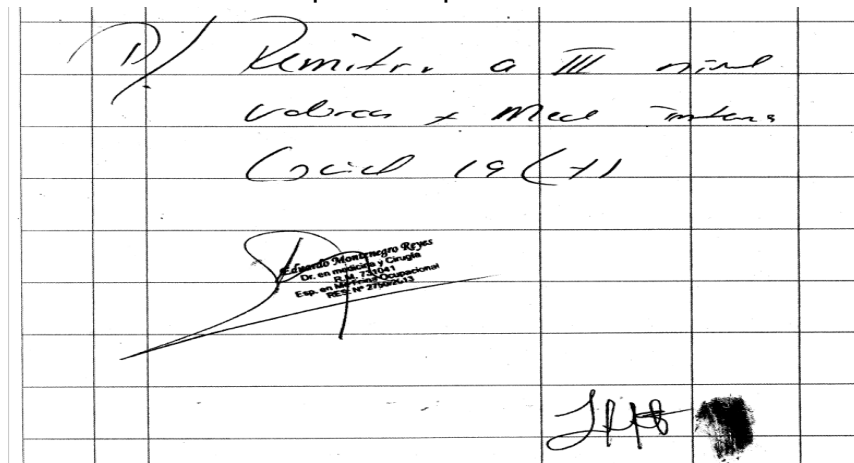 P/ Remitir a III nivel
valorar x Med interna
Covid 19 (+)
Eduardo Montenegro Reyes
Dr. en medicina y Cirugía
R.M. 731041
Esp. en Medicina Ocupacional
RES. Nº 2750/2013